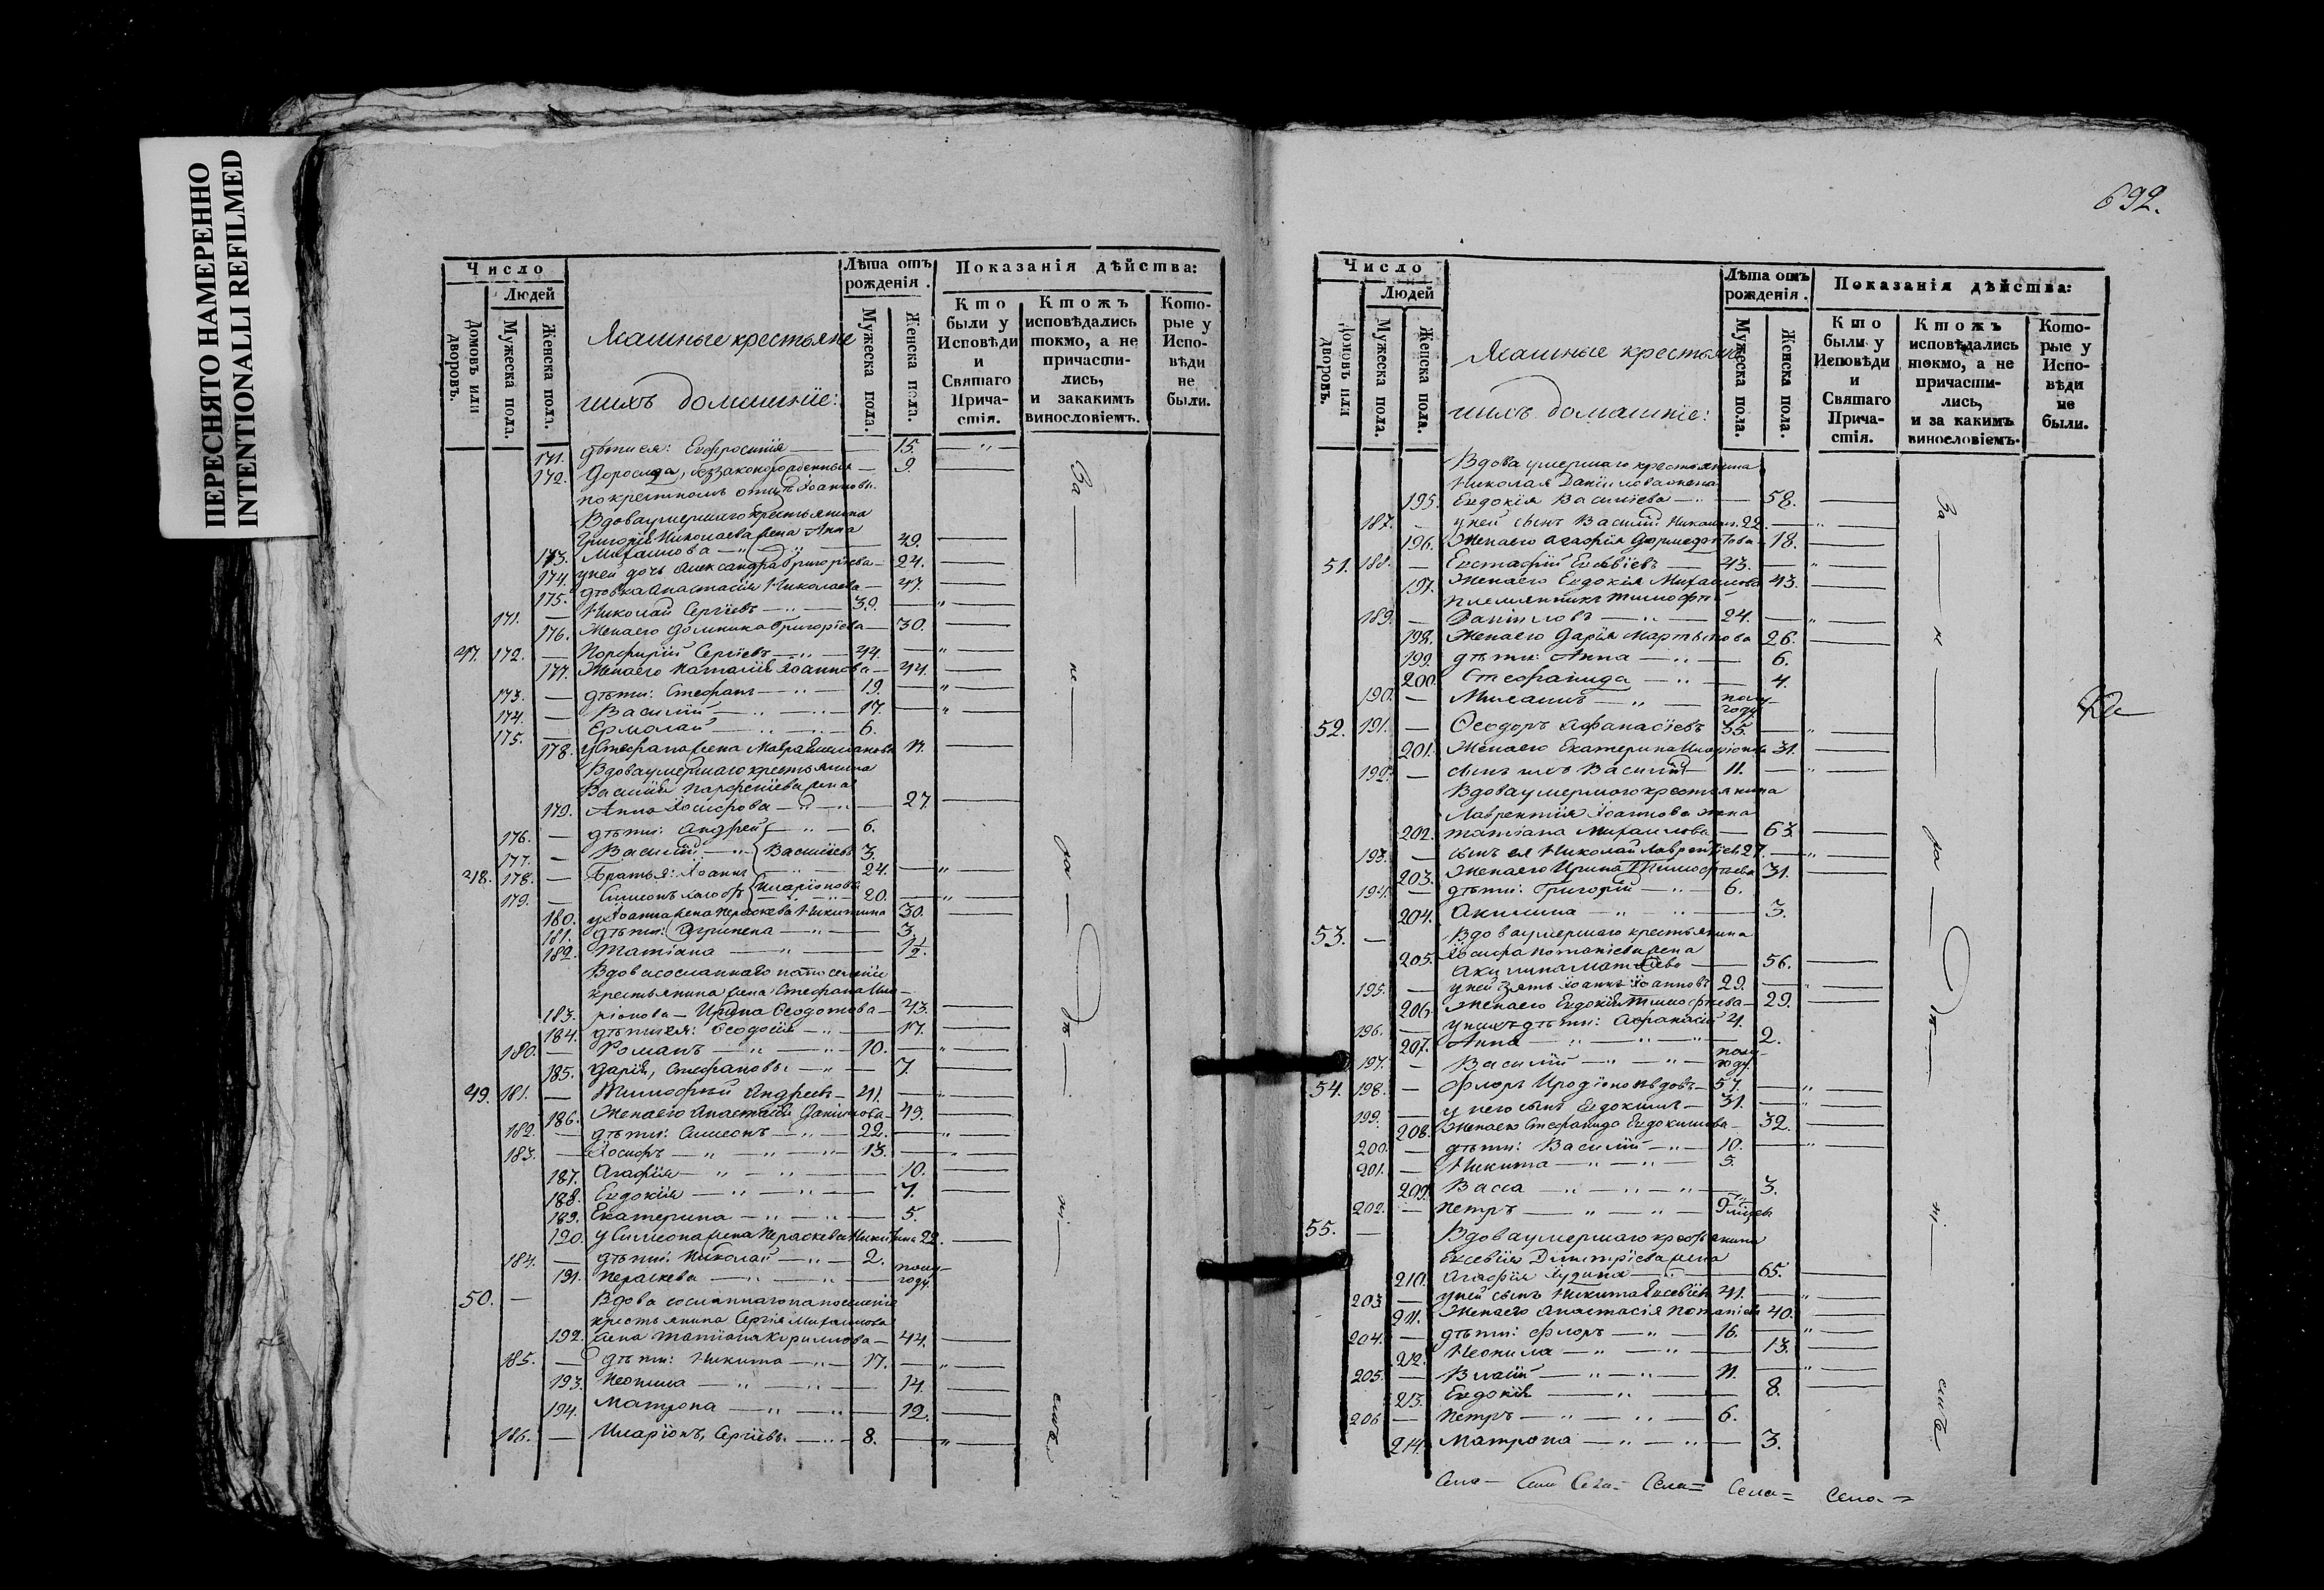 ПЕРЕСНЯТО НАМЕРЕННО
INTENTIONALLI REFILMED
Число
Людей
Домовъ или дворовъ.
Мужеска пола.
Женска пола.
Ясашные крестьяне
ихъ домашніе:
Лѣта отъ рожденія.
Мужеска пола.
Женска пола.
Показанія дѣйства:
Кто были у Исповѣди и Святаго Причастія.
Ктожъ исповѣдались токмо, а не причастились, и закакимъ винословіемъ.
Которые у Исповѣди не были.
171. дѣти ея: Евфросинія 15.
172. незаконорожденныя 9.
по крестномъ отцѣ Іоанновы.
Вдова умершаго крестьянина
Григорія Николаева жена Анна
173. Михаилова 49.
174. у ней дочь Александра Григорьева 24.
175. Анастасія Николаева 47.
171. Николай Сергіевъ 39.
176. Жена его Домника Григорьева 30.
47. 172. Порфирій Сергіевъ 44.
177. Жена его Наталія Іоаннова 44.
173. дѣти: Стефанъ 19.
174. Василій 17.
175. Ермолай 6.
178. у Стефана жена Мавра
Вдова умершаго крестьянина
Василія Парфеніева жена
179. Анна Іосифова 27.
176. дѣти: Андрей 6.
177. Василій Васильевы 3.
48. 178. Братья: Іоаннъ 24.
179. Симеонъ Иларіоновы 20.
180. у Іоанна жена Параскева Никитина 30.
181. дѣти: Агрипена 3.
182. Татіана 1½
Вдова сосланнаго на поселеніе
крестьянина жена Стефана Ила-
183. ріонова Ирина Ѳеодотова 43.
184. дѣти ея: Ѳеодосія 17.
180. Романъ 10.
185. Дарія, Стефановы 7.
49. 181. Тимофей Андреевъ 41.
186. Жена его Анастасія Данилова 49.
182. дѣти: Симеонъ 22.
183. Іосифъ 13.
187. Агафія 10.
188. Евдокія 7.
189. Екатерина 5.
190. у Симеона жена Параскева Никитина 22.
184. дѣти: Николай 2.
191. Параскева полугоду.
50. Вдова сосланнаго на поселеніе
крестьянина Сергія Михаилова
192. жена Татіана Кирилова 44.
185. дѣти: Никита 17.
193. Неонила 14.
194. Матрона 12.
186. Иларіонъ, Сергіевы 8.
692.
Число
Людей
Домовъ или дворовъ.
Мужеска пола.
Женска пола.
Ясашные крестьяне
ихъ домашніе:
Лѣта отъ рожденія.
Мужеска пола.
Женска пола.
Показанія дѣйства:
Кто были у Исповѣди и Святаго Причастія.
Ктожъ исповѣдались токмо, а не причастились, и за какимъ винословіемъ.
Которые у Исповѣди не были.
Вдова умершаго крестьянина
Николая Данилова жена
195. Евдокія Васильева 58.
187. у ней сынъ Василій Николаевъ 22.
196. Жена его Агафія Дормедонтова 18.
51. 188. Евстафій Евсевіевъ 43.
197. Жена его Евдокія Михаилова 43.
племянникъ Тимофей
189. Даниловъ 24.
198. Жена его Дарія Мартынова 26.
199. дѣти: Анна 6.
200. Стефанида 4.
190. полугоду
52. 191. Ѳеодоръ Афанасіевъ 35.
201. Жена его Екатерина Иларіонова 31.
192. сынъ ихъ Василій 11.
Вдова умершаго крестьянина
Лаврентія Іоаннова жена
202. Татіана Михаилова 63
193. сынъ ея Николай Лаврентіевъ 27.
203. Жена его Ирина Тимофеева 31.
194. дѣти: Григорій 6.
204. Акилина 3.
53. Вдова умершаго крестьянина
Іосифа Потапіева жена
205. Акилина Матѳіева 56.
195. у ней зять Іоаннъ Іоанновъ 29.
206. Жена его Евдокія Тимофеева 29.
196. у нихъ дѣти: Афанасій 4.
207. Анна 2.
197. Василій полугоду.
54. 198. Флоръ Иродіоновъ вдовъ 57.
199. у него сынъ Евдокимъ 31.
208. Жена его Стефанида Евдокимова 32.
200. дѣти: Василій 10.
201. Никита 5.
209. Васса 3.
202. Петръ
55. Вдова умершаго крестьянина
Евсевія Димитріева жена
210. Агафія 65.
203. у ней сынъ Никита Евсевіевъ 41.
211. Жена его Анастасія Потапіева 40.
204. дѣти: Флоръ 16.
212. Неонила 13.
205. Власій 11.
213. Евдокія 8.
206. Петръ 6.
214. Матрона 3.